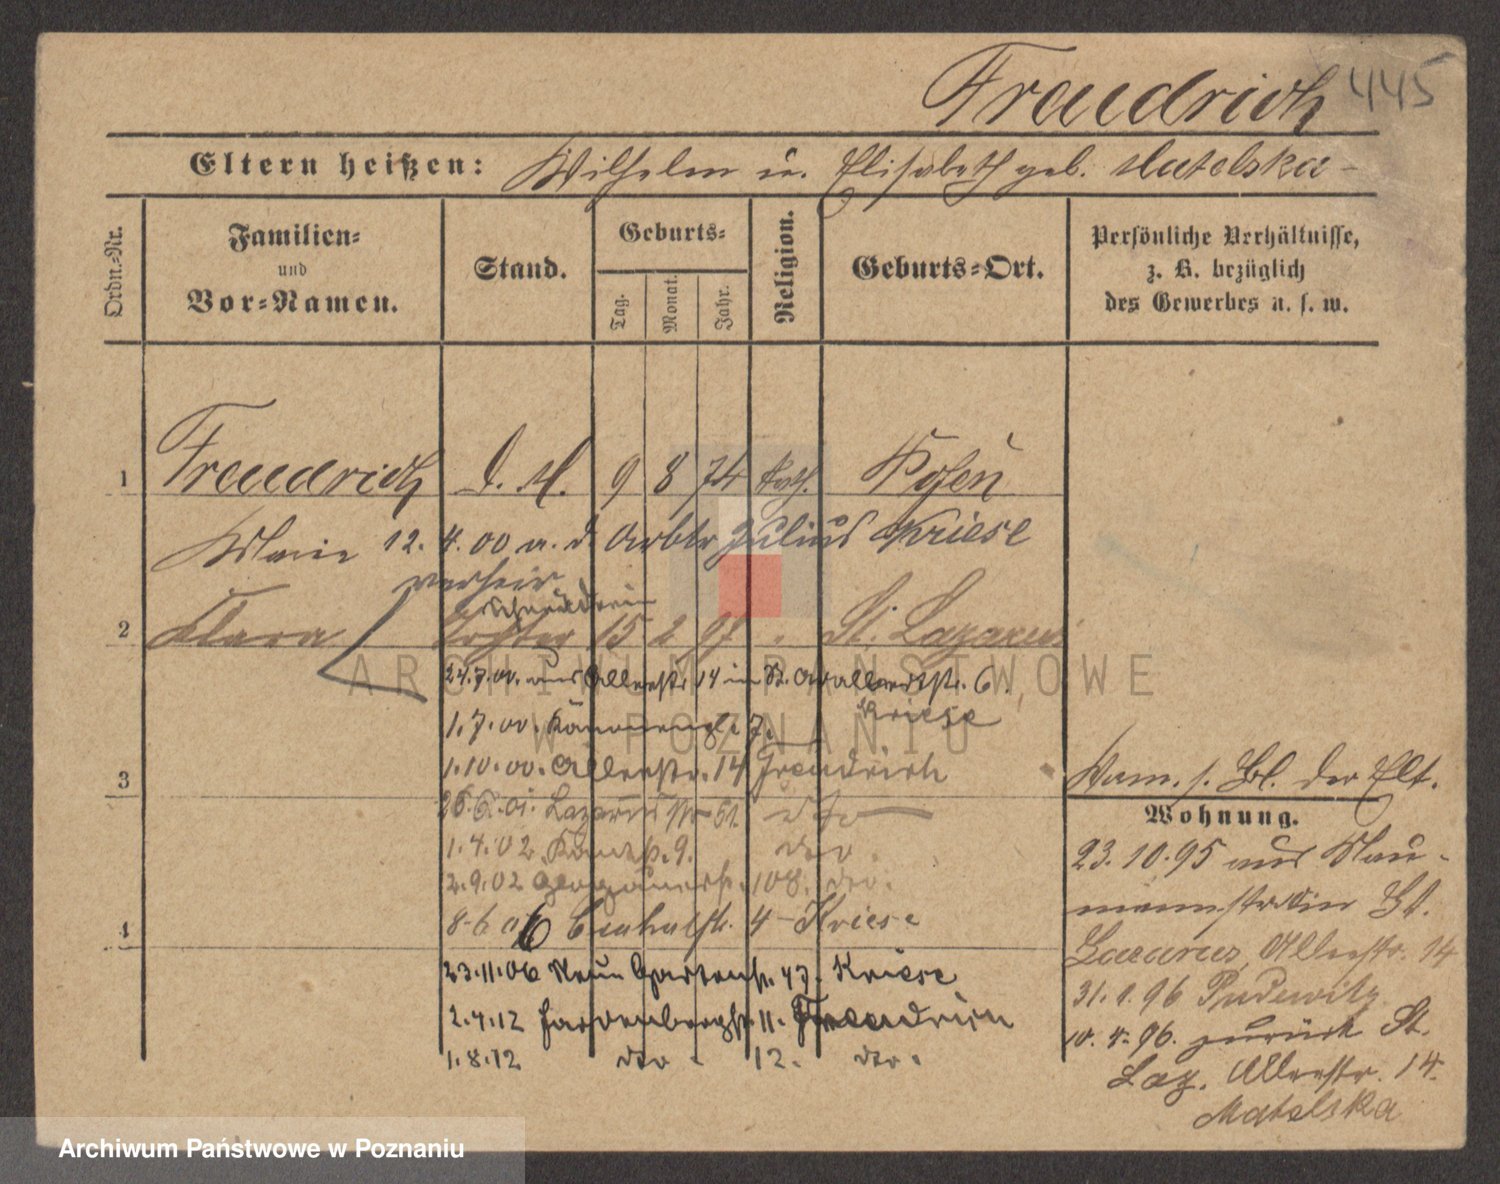 Freudrich 445
Eltern heißen: Wilhelm u. Elisabeth geb. Matelska -
Ordn.-Nr.
Familien-
und
Vor-Namen.
Stand.
Geburts-
Tag.
Monat.
Jahr.
Religion.
Geburts-Ort.
Persönliche Verhältnisse,
z. B. bezüglich
des Gewerbes u. s. w.
1 Freudrich d. M. 9 8 74 kath. Posen
Marie 12. 4. 00 m. d. Arbtr Julius Kriese
verheir
Schneiderin
2 Clara Tochter 15 2 97 " St. Lazarus
24.7.00. aus Alleestr. 14 in St. 6.
1.7.00. 7. Kriese
1.10.00. Alleestr. 14 Freudrich
3
26.6.01. Lazarusstr 51. dto
1.4.02. 9. dto.
2.9.02 Glogauerstr. 108. dto.
8.6 06 4 - Kriese
4
23.11.06 Neue Gartenstr. 47. Kriese
2.4.12 Hardenbergstr. 11. Freudrich
1.8.12 dto - 12. dto.
Verm. s. Bl. der Elt.
Wohnung.
23.10.95 aus Nau-
mannstr in St.
Lazarus, Alleestr. 14
31.1.96 Pudewitz
10. 4. 96. zurück St.
Laz. Alleestr. 14.
Matelska
ARCHIWUM PAŃSTWOWE
W POZNANIU
Archiwum Państwowe w Poznaniu